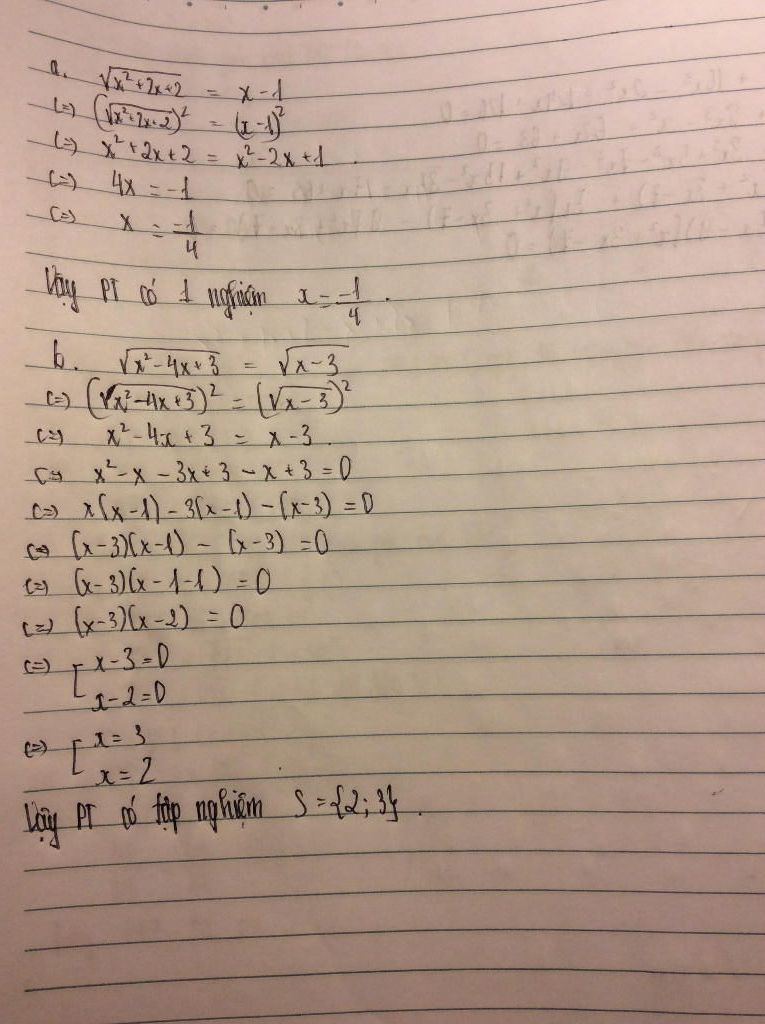 a. √(x²+2x+2) = x-1
(=) (√(x²+2x+2))² = (x-1)²
(=) x²+2x+2 = x²-2x+1.
(=) 4x = -1
(=) x = -1/4
Vậy PT có 1 nghiệm x = -1/4.
b. √(x²-4x+3) = √(x-3)
(=) (√(x²-4x+3))² = (√(x-3))²
(=) x²-4x+3 = x-3.
(=) x²-x-3x+3-x+3=0
(=) x(x-1)-3(x-1)-(x-3)=0
(=) (x-3)(x-1)-(x-3)=0
(=) (x-3)(x-1-1)=0
(=) (x-3)(x-2)=0
(=) [ x-3=0
x-2=0
(=) [ x=3
x=2
Vậy PT có tập nghiệm S={2;3}.